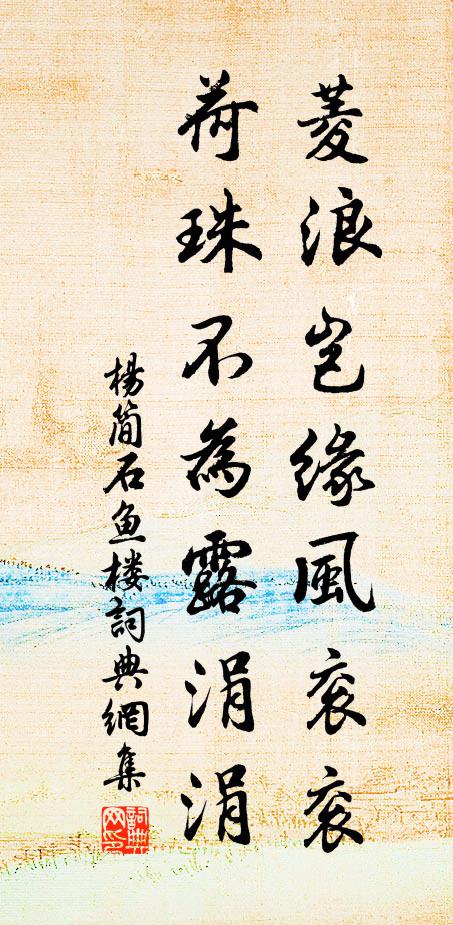 菱浪岂缘風衮衮
荷珠不為露涓涓
楊簡石鱼楼詞典網集
詞典网印